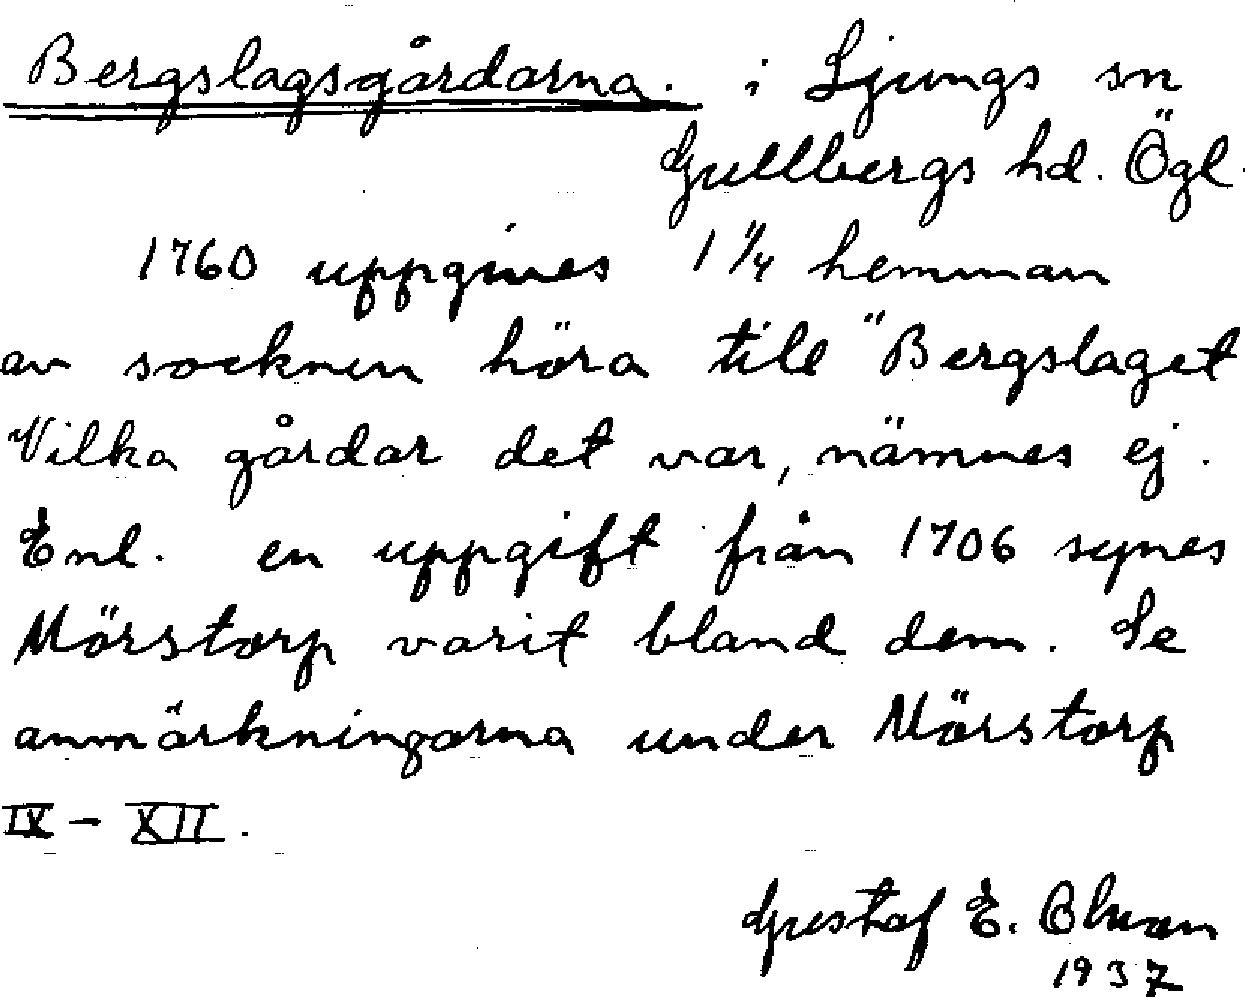 Bergslagsgårdarna. i Ljungs sn
Gullbergs hd. Ögl.
1760 uppgives 1 1/4 hemman
av socknen höra till "Bergslaget
Vilka gårdar det var, nämnes ej.
Enl. en uppgift från 1706 synes
Mörstorp varit bland dem. Se
anmärkningarna under Mörstorp
IX – XII.
Gustaf E.
1937